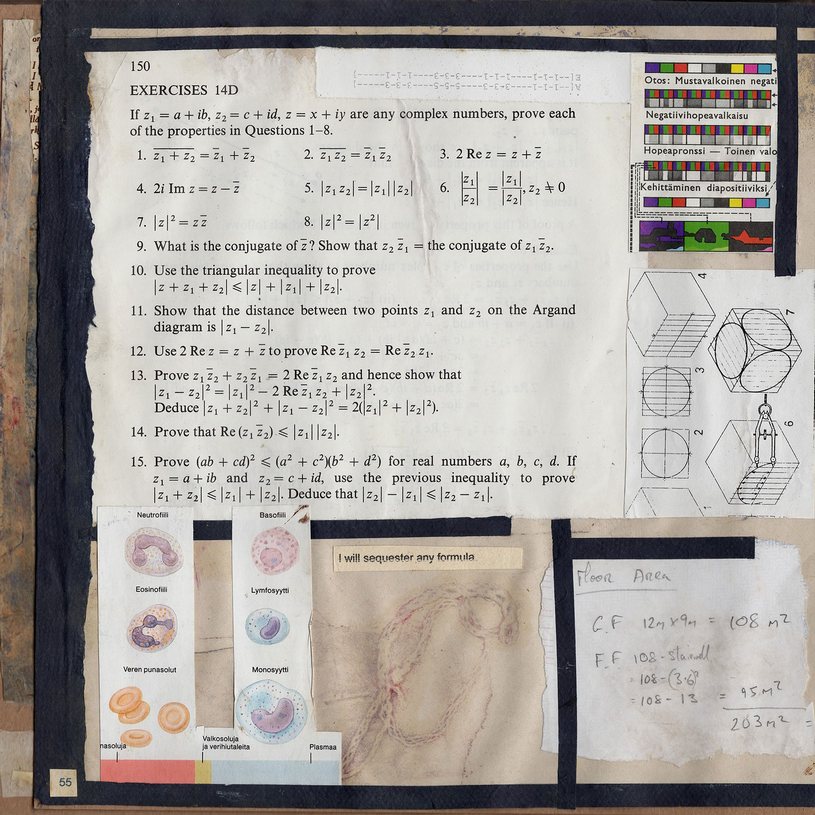 150
EXERCISES 14D
If z₁ = a + ib, z₂ = c + id, z = x + iy are any complex numbers, prove each
of the properties in Questions 1–8.
1. \overline{z₁ + z₂} = z̅₁ + z̅₂ 2. \overline{z₁ z₂} = z̅₁ z̅₂ 3. 2 Re z = z + z̅
4. 2i Im z = z − z̅ 5. |z₁ z₂| = |z₁| |z₂| 6. |z₁/z₂| = |z₁|/|z₂|, z₂ ≠ 0
7. |z|² = z z̅ 8. |z|² = |z²|
9. What is the conjugate of z̅? Show that z₂ z̅₁ = the conjugate of z₁ z̅₂.
10. Use the triangular inequality to prove
|z + z₁ + z₂| ⩽ |z| + |z₁| + |z₂|.
11. Show that the distance between two points z₁ and z₂ on the Argand
diagram is |z₁ − z₂|.
12. Use 2 Re z = z + z̅ to prove Re z̅₁ z₂ = Re z̅₂ z₁.
13. Prove z₁ z̅₂ + z₂ z̅₁ = 2 Re z̅₁ z₂ and hence show that
|z₁ − z₂|² = |z₁|² − 2 Re z̅₁ z₂ + |z₂|².
Deduce |z₁ + z₂|² + |z₁ − z₂|² = 2(|z₁|² + |z₂|²).
14. Prove that Re (z₁ z̅₂) ⩽ |z₁| |z₂|.
15. Prove (ab + cd)² ⩽ (a² + c²)(b² + d²) for real numbers a, b, c, d. If
z₁ = a + ib and z₂ = c + id, use the previous inequality to prove
|z₁ + z₂| ⩽ |z₁| + |z₂|. Deduce that |z₂| − |z₁| ⩽ |z₂ − z₁|.
Otos: Mustavalkoinen negati
Negatiivihopeavalkaisu
Hopeapronssi — Toinen valo
Kehittäminen diapositiiviksi
4
7
3
2
6
Neutrofiili
Basofiili
Eosinofiili
Lymfosyytti
Veren punasolut
Monosyytti
nasoluja
Valkosoluja
ja verihiutaleita
Plasmaa
I will sequester any formula.
Floor Area
G.F 12m x 9m = 108 m²
F.F 108 - stairwell
= 108 - (3·6)²
= 108 - 13 = 95 m²
203 m² =
55